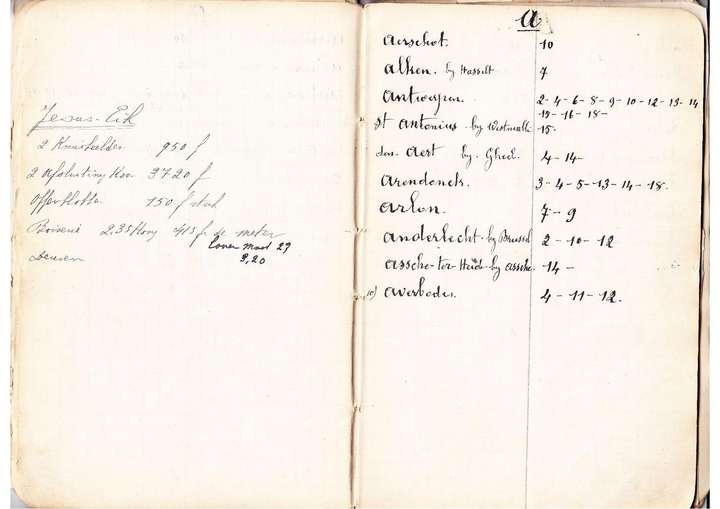 Jesus-Eik
2 Kruisbeelden 950 f
2 Afsluiting Koor 3720 f
Offerblokken 150 f stuk
Boiserie 2.35 Hoog 415 f. de meter
Leuven
9,20
a
Aerschot. 10
Alken. by Hasselt 7
Antwerpen. 2-4-6-8-9-10-12-13-14
-15-16-18-
St Antonius-by Westmalle -15-
den-Aert by. Gheel. 4-14-
Arendonck. 3-4-5-13-14-18.
Arlon. 7-9
Anderlecht-by Brussel 2-10-12
Assche-ter-Heide-by assche. -14-
10) Averbode. 4-11-12.